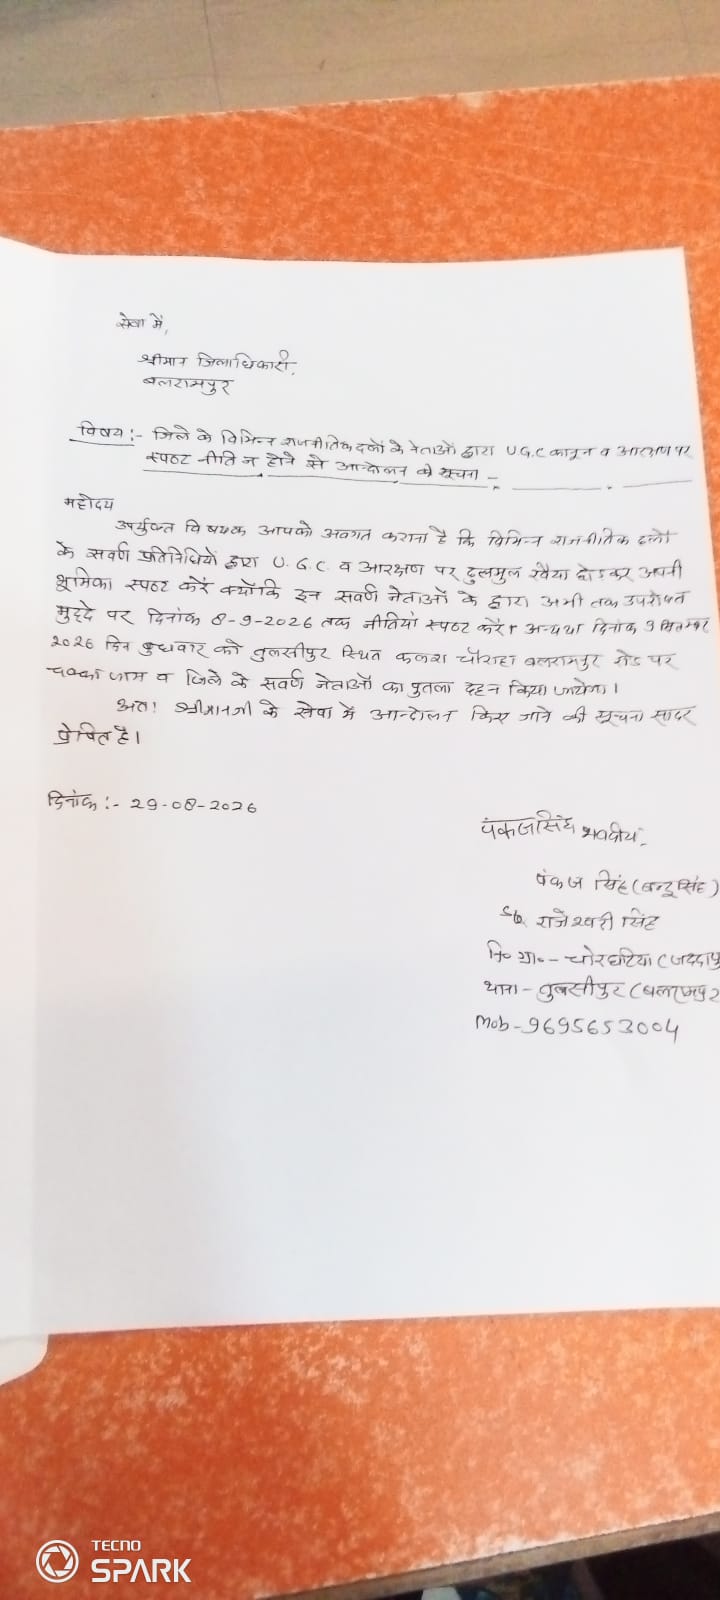 सेवा में,
श्रीमान जिलाधिकारी,
बलरामपुर
विषय :- जिले के विभिन्न राजनीतिक दलों के नेताओं द्वारा U.G.C कानून व आरक्षण पर
स्पष्ट नीति न होने से आन्दोलन की सूचना -
महोदय
उपर्युक्त विषयक आपको अवगत कराना है कि विभिन्न राजनीतिक दलों
के सवर्ण प्रतिनिधियों द्वारा U.G.C. व आरक्षण पर ढुलमुल रवैया छोडकर अपनी
भूमिका स्पष्ट करें क्योंकि इन सवर्ण नेताओं के द्वारा अभी तक उपरोक्त
मुद्दे पर दिनांक 8-9-2026 तक नीतियां स्पष्ट करें। अन्यथा दिनांक 9 सितम्बर
2026 दिन बुधवार को तुलसीपुर स्थित कलश चौराहा बलरामपुर रोड पर
चक्का जाम व जिले के सवर्ण नेताओं का पुतला दहन किया जायेगा।
अतः श्रीमानजी के सेवा में आन्दोलन किए जाने की सूचना सादर
प्रेषित है।
दिनांक :- 29-08-2026
पंकजसिंह भवदीय
पंकज सिंह (बन्टू सिंह)
S/o राजेश्वरी सिंह
नि० ग्रा० - चोरघटिया (
थाना - तुलसीपुर (बलरामपुर
Mob - 9695653004
TECNO
SPARK